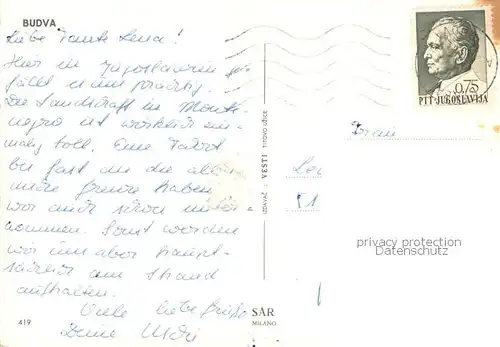 BUDVA
Liebe Tante Lena!
Hier in Jugoslawien ge-
fällt es uns prächtig.
Die Landschaft in Monte-
negro ist wirklich ein-
malig toll. Eine Fahrt
bis fast an die
Grenze haben
wir auch schon unter-
nommen. Sonst werden
wir uns aber haupt-
sächlich am Strand
aufhalten.
Viele liebe Grüße
Deine
419
IZDAVAČ: VESTI TITOVO UŽICE
SAR
MILANO
0,75
PTT JUGOSLAVIJA
Frau
privacy protection
Datenschutz